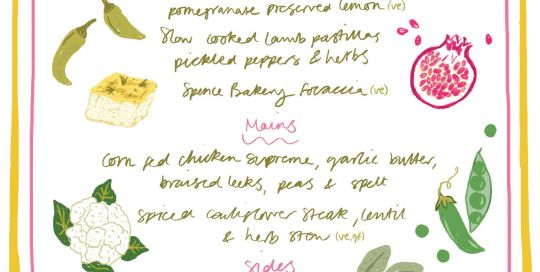 pomegranate preserved lemon (ve)
Slow cooked lamb pastillas
pickled peppers & herbs
Spence Bakery focaccia (ve)
Mains
Corn fed chicken supreme, garlic butter,
braised leeks, peas & spelt
Spiced cauliflower steak, lentil
& herb stew (ve,gf)
Sides